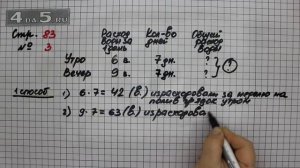 4 ДА 5.РУ
Стр. 83
№ 3
Расход воды за 1 день
Кол-во дней
Общий расход воды
Утро 6 в. 7 дн. ?
Вечер 9 в. 7 дн. ? ?
1 способ
1) 6 · 7 = 42 (в.) израсходовали за неделю на
полив грядок утром
2) 9 · 7 = 63 (в.) израсходова